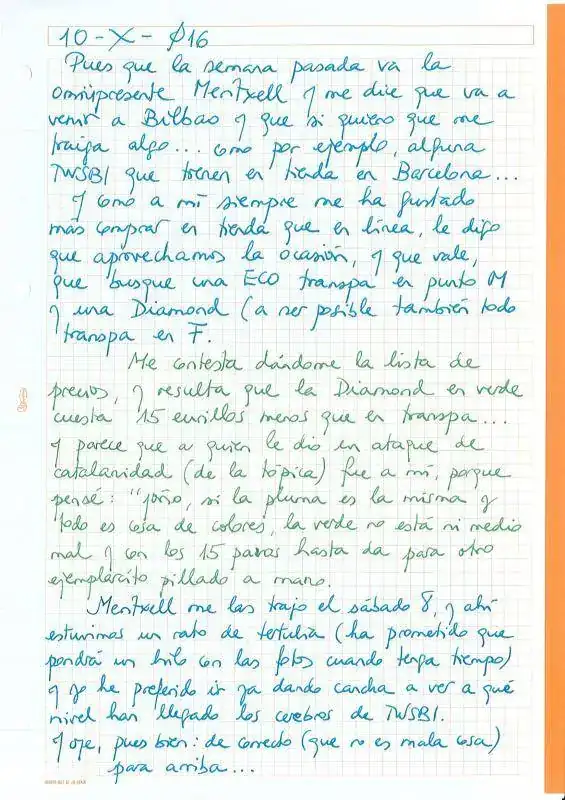 10-X-Ø16
Pues que la semana pasada va la
omnipresente Meritxell y me dice que va a
venir a Bilbao y que si quiero que me
traiga algo... como por ejemplo, alguna
TWSBI que tienen en tienda en Barcelona...
Y como a mí siempre me ha gustado
más comprar en tienda que en línea, le digo
que aprovechamos la ocasión, y que vale,
que busque una ECO transpa en punto M
y una Diamond (a ser posible también todo
transpa en F.
Me contesta dándome la lista de
precios, y resulta que la Diamond en verde
cuesta 15 eurillos menos que en transpa...
Y parece que a quien le dio un ataque de
catalanidad (de la tópica) fue a mí, porque
pensé: "joño, si la pluma es la misma y
todo es cosa de colores, la verde no está ni medio
mal y con los 15 pavos hasta da para otro
ejemplarcito pillado a mano.
Meritxell me las trajo el sábado 8, y ahí
estuvimos un rato de tertulia (ha prometido que
pondrá un hilo con las fotos cuando tenga tiempo)
y yo he preferido ir ya dando cancha a ver a qué
nivel han llegado los cerebros de TWSBI.
Y oye, pues bien: de correcto (que no es mala cosa)
para arriba...